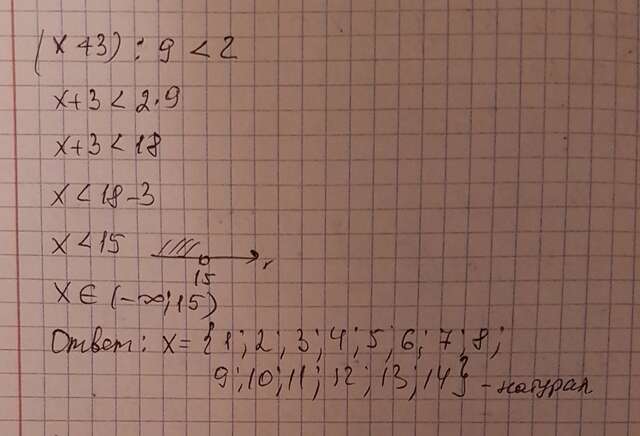 (x+3) : 9 < 2
x+3 < 2·9
x+3 < 18
x < 18-3
x < 15
15 x
x ∈ (-∞; 15)
Ответ: x = {1; 2; 3; 4; 5; 6; 7; 8;
9; 10; 11; 12; 13; 14} - натурал